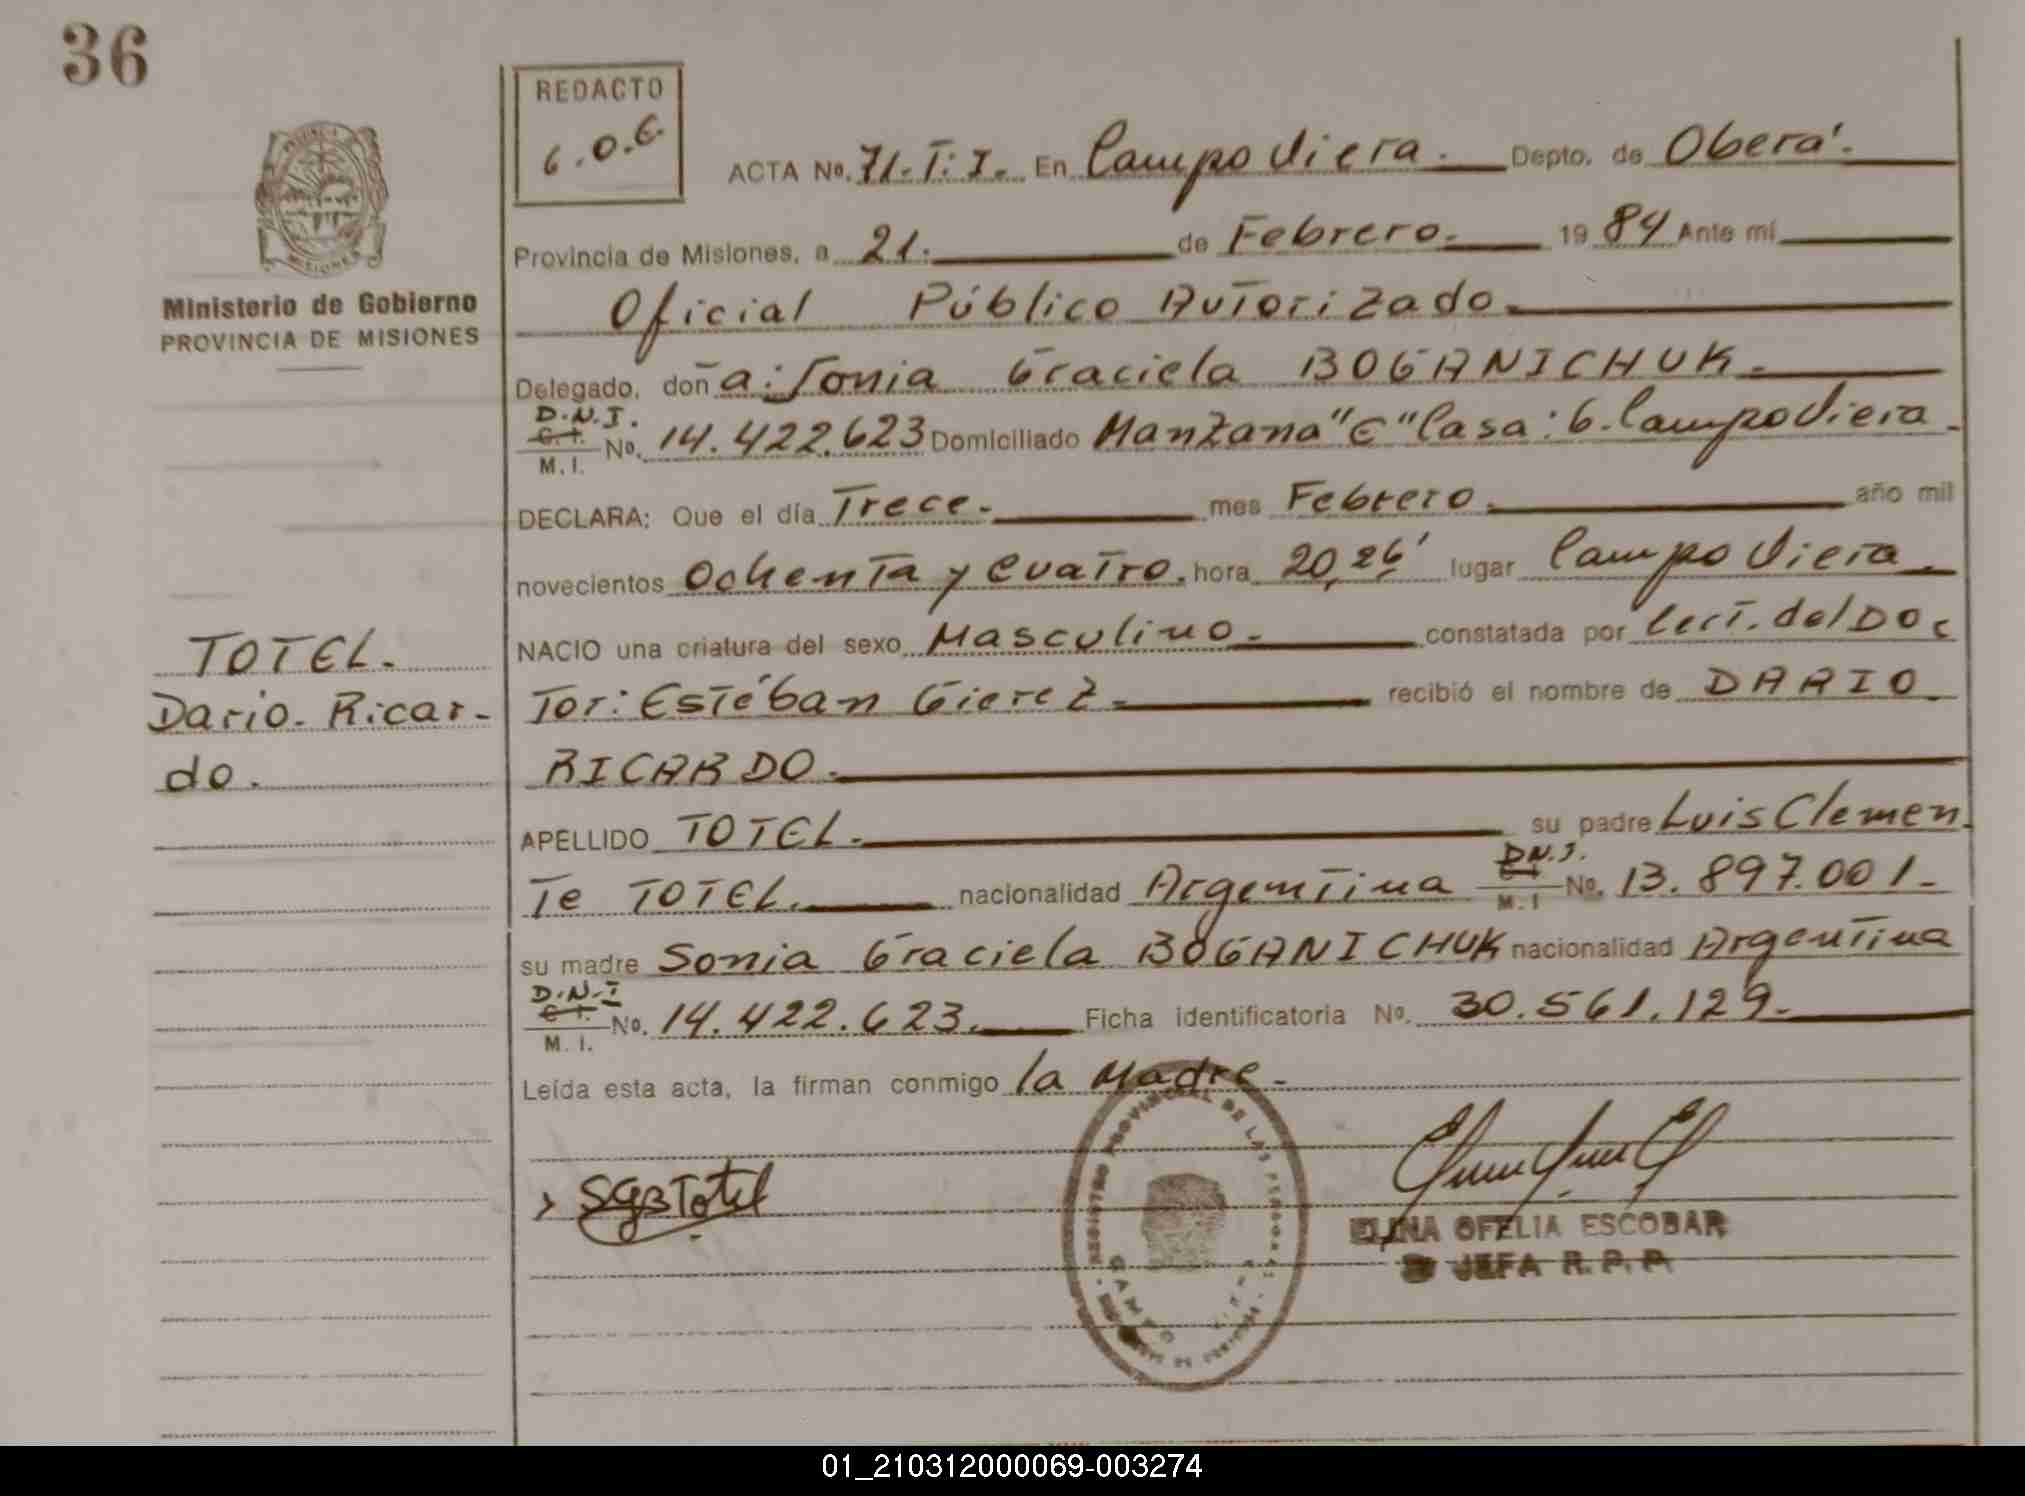 36
REDACTO
G.O.E.
ACTA No. 71.T:I. En Campo Viera. Depto. de Oberá.
Provincia de Misiones, a 21. de Febrero. 19 84 Ante mí
Ministerio de Gobierno
PROVINCIA DE MISIONES
Oficial Público Autorizado.
Delegado, don a: Sonia Graciela BOGANICHUK.
D.N.I.
C.I.
M.I.
No. 14.422.623 Domiciliado Manzana "E" Casa: 6. Campo Viera.
DECLARA: Que el día Trece. mes Febrero. año mil
novecientos Ochenta y Cuatro. hora 20,26' lugar Campo Viera.
NACIO una criatura del sexo Masculino. constatada por Cert. del Doc
TOTEL.
Dario. Ricar-
do.
Tor: Estéban Gierez. recibió el nombre de DARIO.
RICARDO.
APELLIDO TOTEL. su padre Luis Clemen
Te TOTEL. nacionalidad Argentina D.N.I. C.I. M.I No. 13.897.001.
su madre Sonia Graciela BOGANICHUK nacionalidad Argentina
D.N.I
C.I.
M.I.
No. 14.422.623. Ficha identificatoria No. 30.561.129.
Leída esta acta, la firman conmigo la Madre.
REGISTRO PROVINCIAL DE LAS PERSONAS
CAMPO VIERA
SGBTotel
ELINA OFELIA ESCOBAR
JEFA R.P.P.
01_210312000069-003274